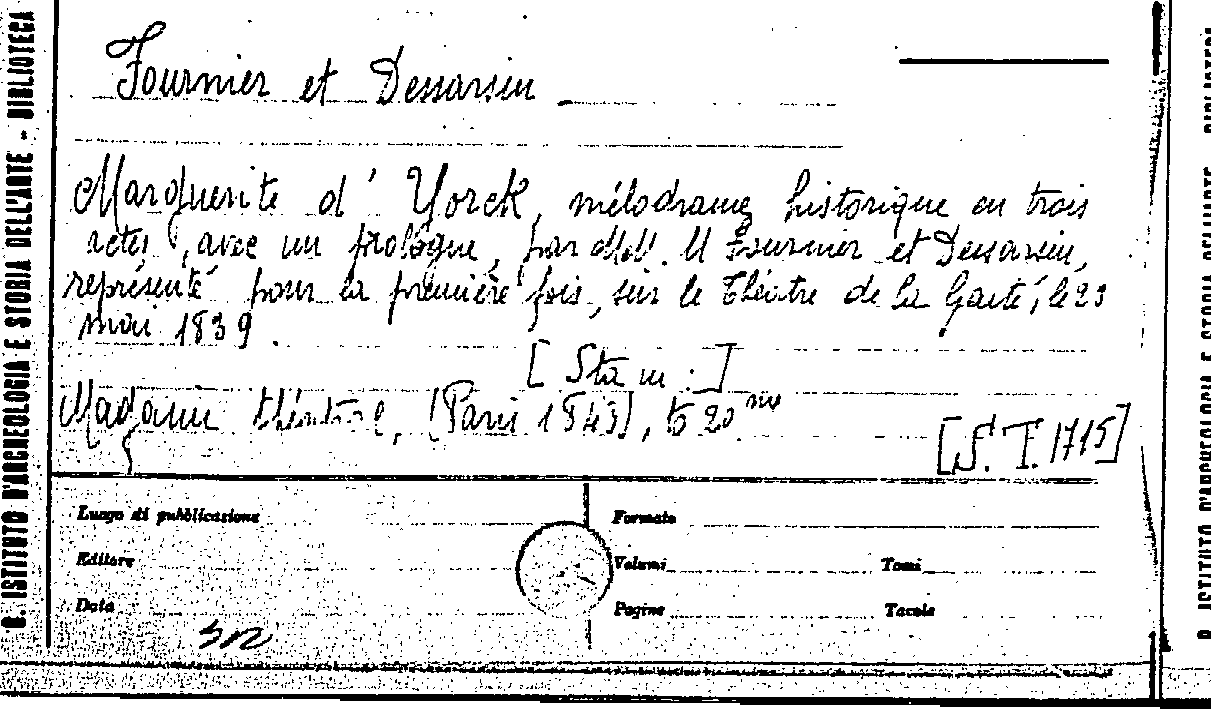 R. ISTITUTO D'ARCHEOLOGIA E STORIA DELL'ARTE - BIBLIOTECA
Fournier et Dessarsin
Marguerite d'Yorck, mélodrame historique en trois
actes, avec un prologue, par MM. Fournier et Dessarsin,
représenté pour la première fois, sur le Théâtre de la Gaité, le 23
mai 1839.
[Stam.]
Magasin théatral, (Paris 1843), to 20me
[S. T. 1715]
Luogo di pubblicazione
Formato
Editore
Volumi
Tomi
Data
Pagine
Tavole